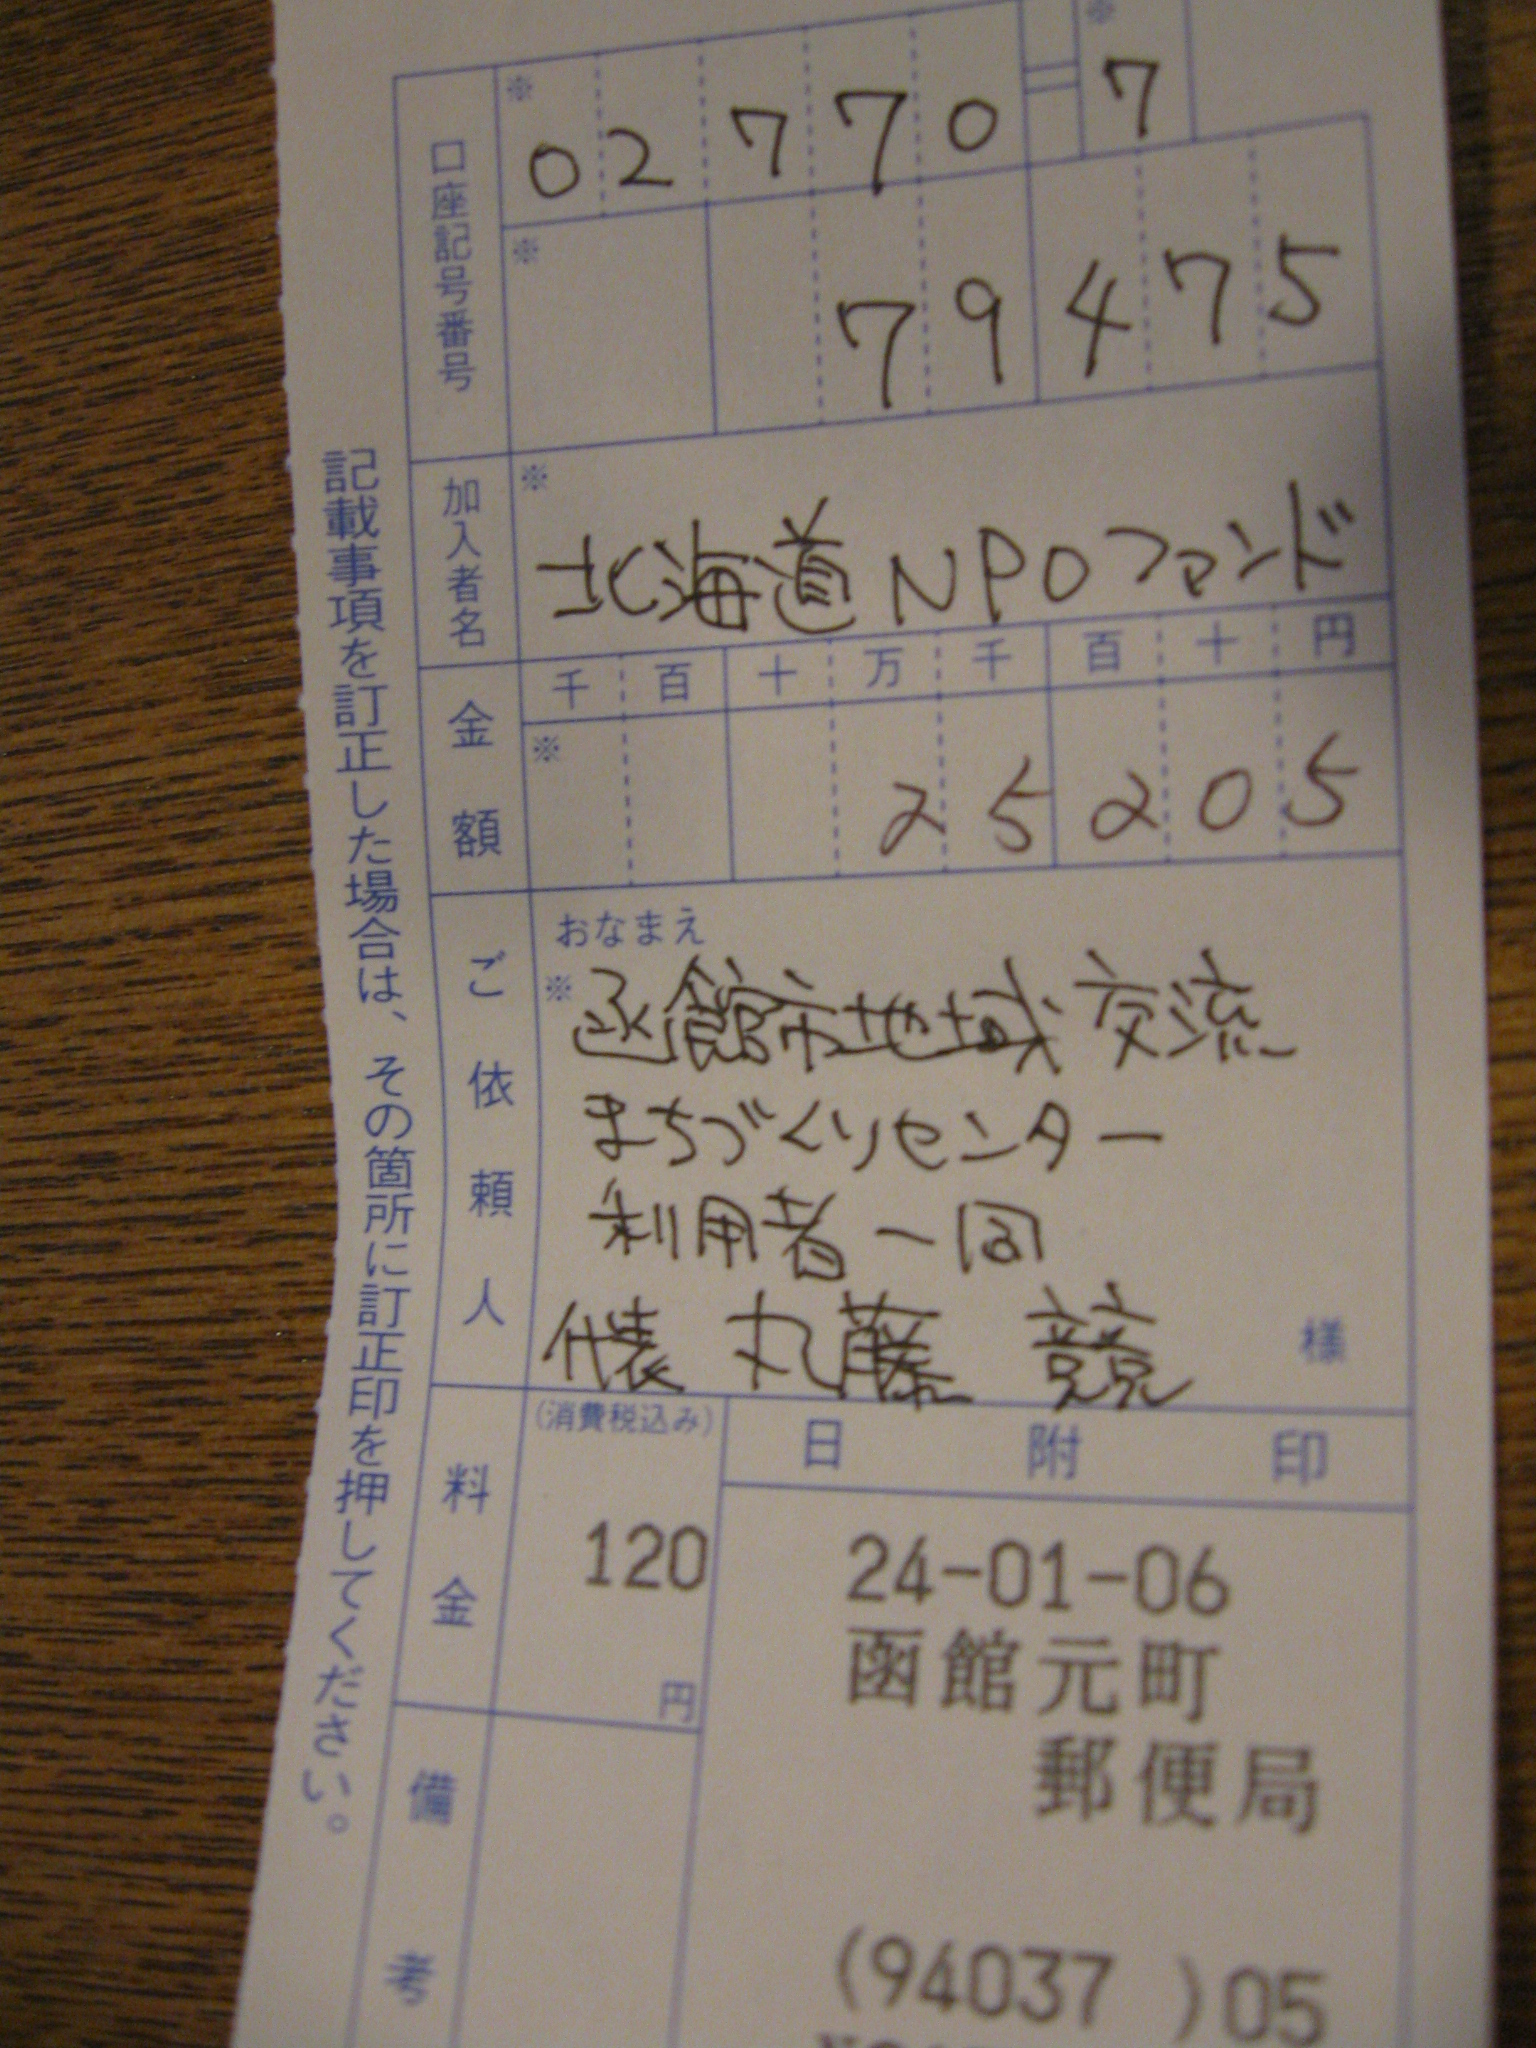 口座記号番号
※ 02770 ※ 7
※ 79475
加入者名
※
北海道NPOファンド
金額
千 百 十 万 千 百 十 円
※ 25205
ご依頼人
おなまえ
※ 函館市地域交流
まちづくりセンター
利用者一同
代表 丸藤 競 様
料金
(消費税込み)
120
円
日附印
24-01-06
函館元町
郵便局
(94037 )05
備考
記載事項を訂正した場合は、その箇所に訂正印を押してください。